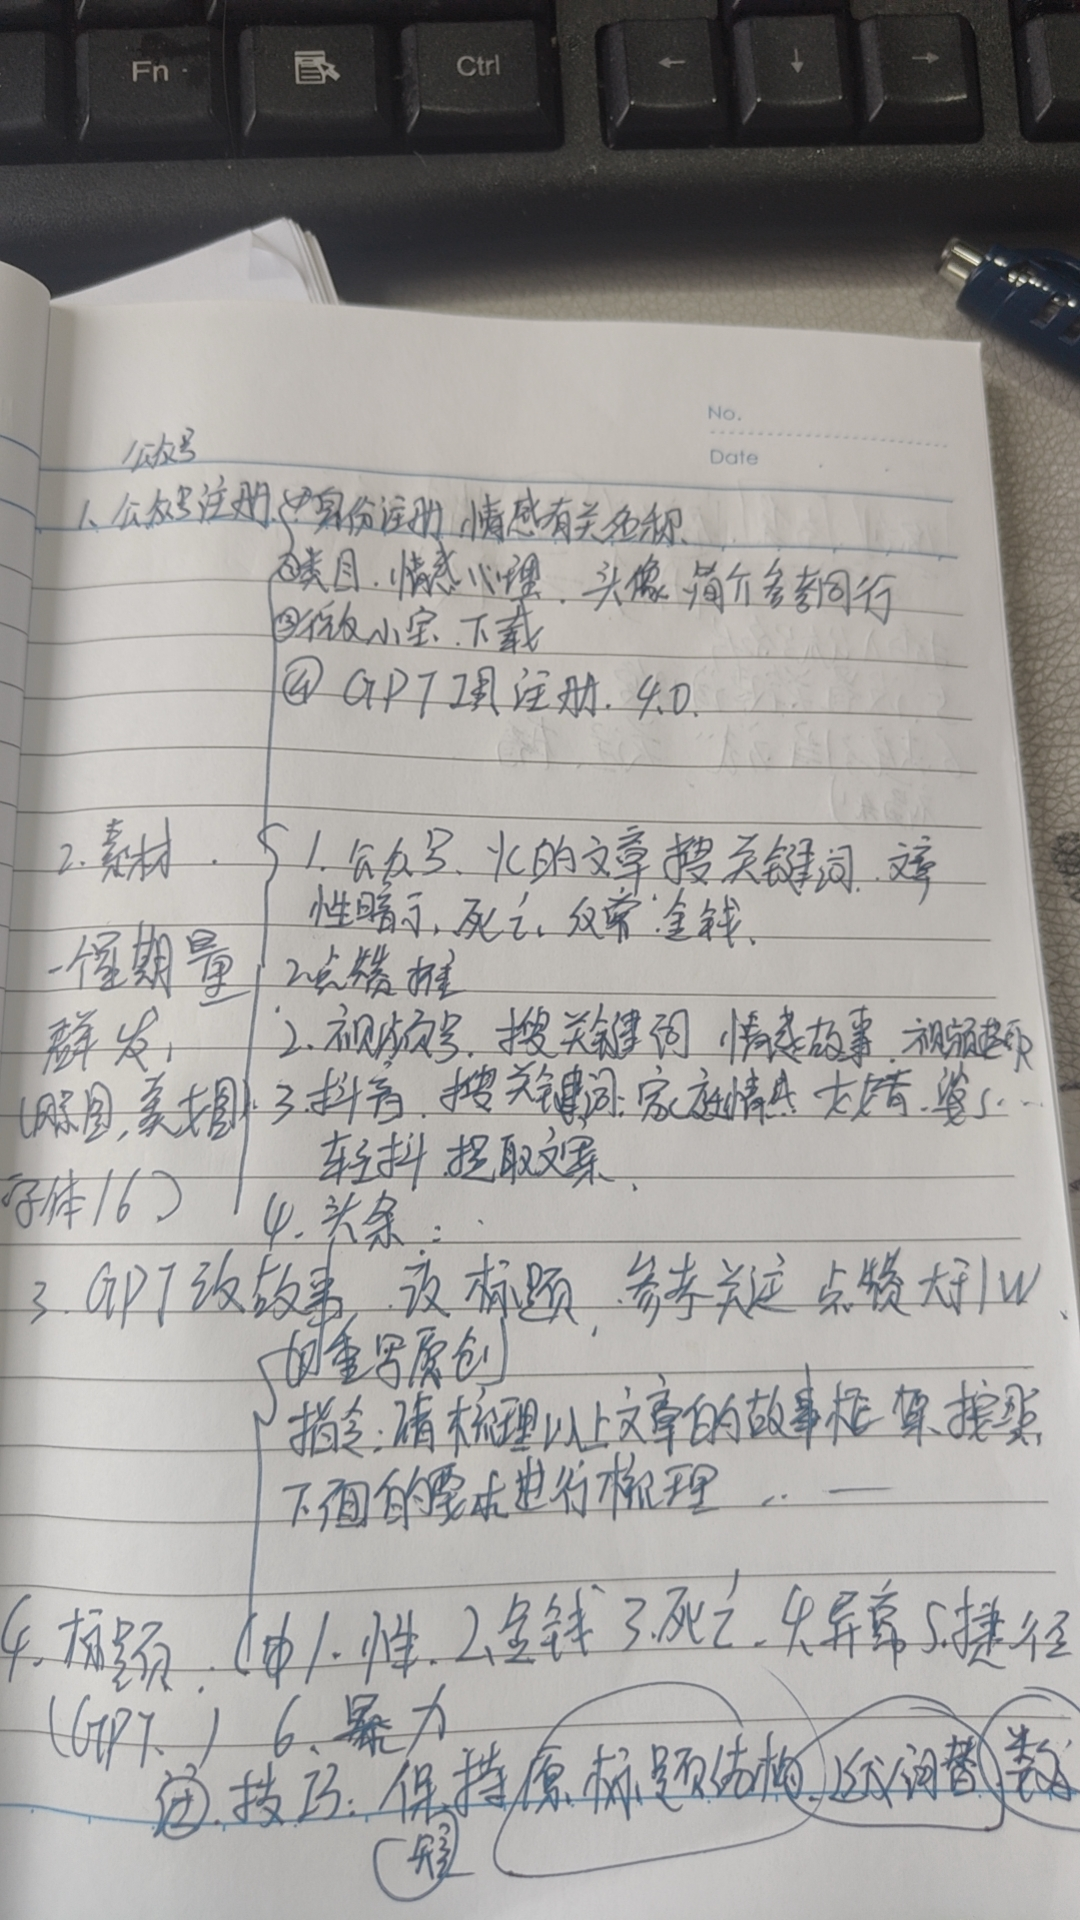 Fn
Ctrl
← ↓ →
No.
Date
公众号
1、公众号注册、①身份注册,情感有关名称、
②类目、情感心理、头像、简介参考同行
③微小宝、下载
④ GPT工具注册、4.0.
2.素材
1.公众号、火的文章搜关键词、文章
性暗示、死亡、金钱、
一个星期量
2.点赞
群发,
2.视频号、搜关键词 情感故事、视频
(原图,美图)
3.抖音、搜关键词:家庭情感 婆
轻抖.提取文案、
字体16)
4.头条:
3.GPT改故事、改标题,参考关注 点赞大于1W、
重写原创
指令:请梳理以上文章的故事框架,按照
下面的要求进行梳理 ..—
4.标题、1.性、2.金钱 3.死亡、4.异常 5.捷径
(GPT、) 6、暴力
技巧:保持原标题结构,近义词替